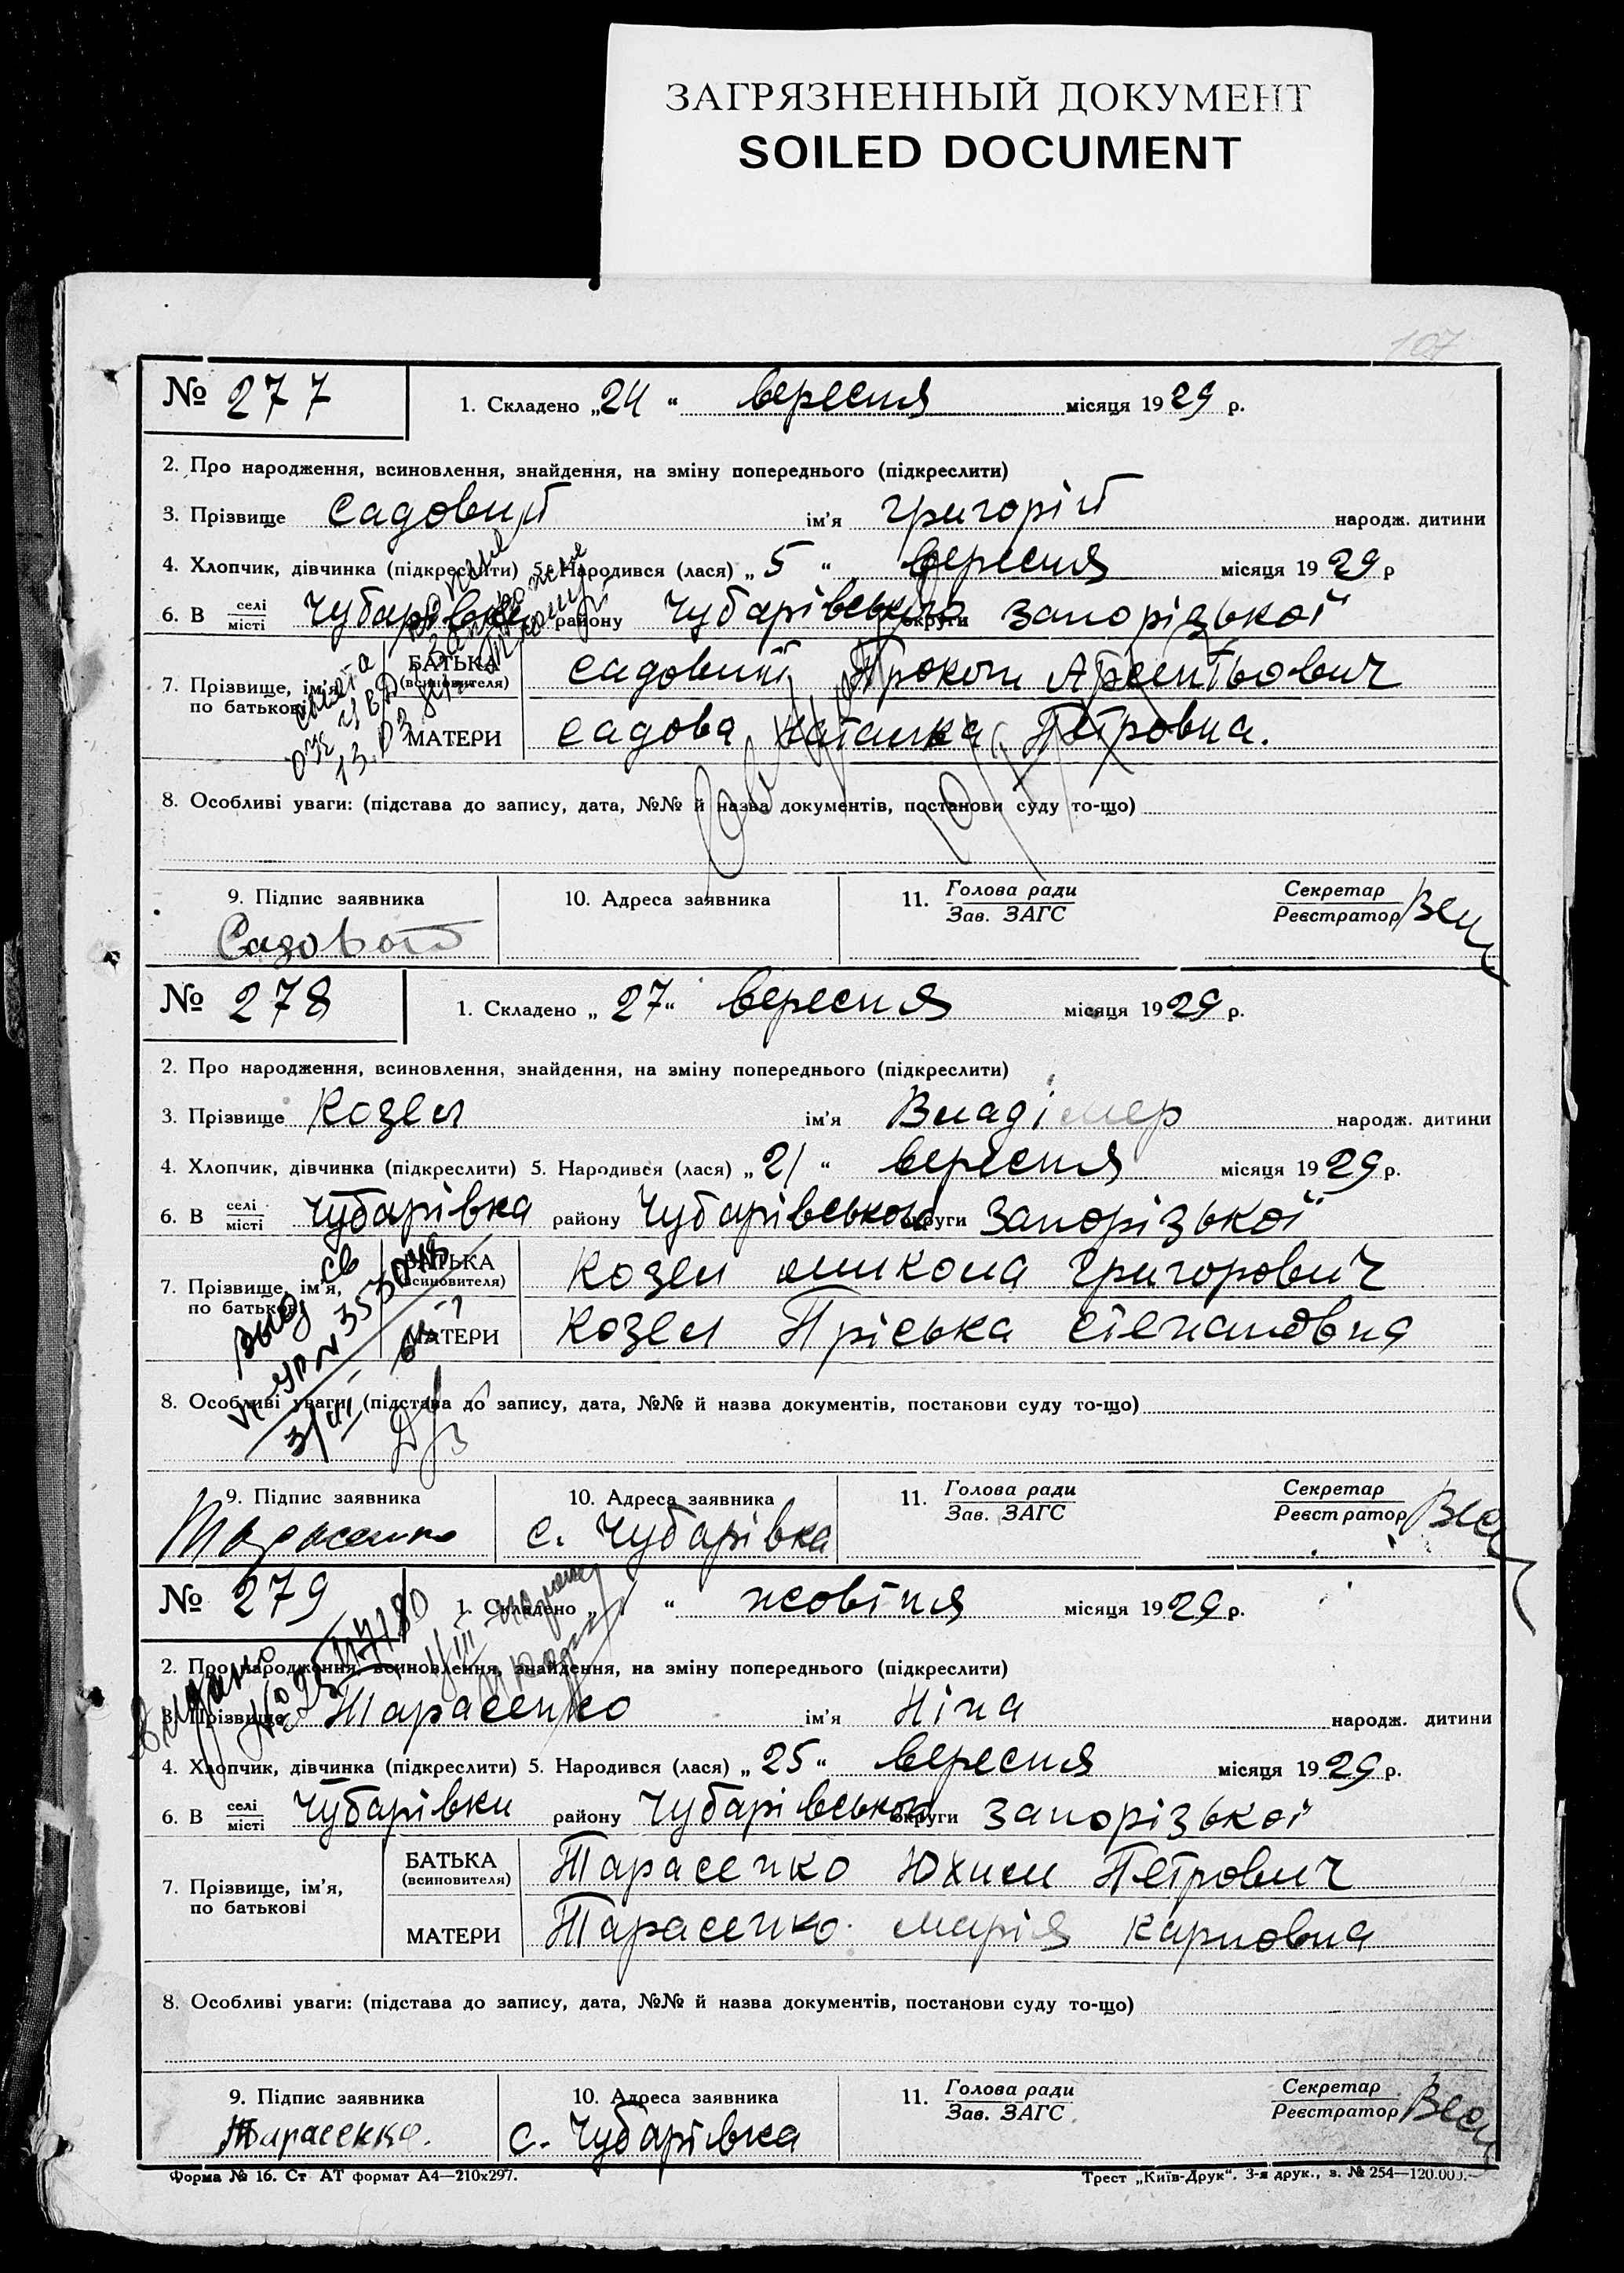 ЗАГРЯЗНЕННЫЙ ДОКУМЕНТ
SOILED DOCUMENT
107
№ 277
1. Складено „24“ вересня місяця 1929 р.
2. Про народження, всиновлення, знайдення, на зміну попереднього (підкреслити)
3. Прізвище Садовий ім'я Григорій народж. дитини
4. Хлопчик, дівчинка (підкреслити) 5. Народився (лася) „5“ вересня місяця 1929 р
6. В селі місті Чубарівка району Чубарівського округи Запорізької
7. Прізвище, ім'я, по батькові
БАТЬКА (всиновителя) Садовий Прокоп Арсентьович
МАТЕРИ Садова Наталка Петровна.
8. Особливі уваги: (підстава до запису, дата, №№ й назва документів, постанови суду то-що)
9. Підпис заявника
10. Адреса заявника
11. Голова ради Зав. ЗАГС
Секретар Реєстратор
Садовой
№ 278
1. Складено „27“ вересня місяця 1929 р.
2. Про народження, всиновлення, знайдення, на зміну попереднього (підкреслити)
3. Прізвище Козел ім'я Владімер народж. дитини
4. Хлопчик, дівчинка (підкреслити) 5. Народився (лася) „21“ вересня місяця 1929 р.
6. В селі місті Чубарівка району Чубарівського округи Запорізької
7. Прізвище, ім'я, по батькові
БАТЬКА (всиновителя) Козел Микола Григорович
МАТЕРИ Козел Пріська Степановна
8. Особливі уваги: (підстава до запису, дата, №№ й назва документів, постанови суду то-що)
9. Підпис заявника
10. Адреса заявника
11. Голова ради Зав. ЗАГС
Секретар Реєстратор
с. Чубарівка
№ 279
1. Складено „1“ жовтня місяця 1929 р.
2. Про народження, всиновлення, знайдення, на зміну попереднього (підкреслити)
3. Прізвище Тарасенко ім'я Ніна народж. дитини
4. Хлопчик, дівчинка (підкреслити) 5. Народився (лася) „25“ вересня місяця 1929 р.
6. В селі місті Чубарівки району Чубарівського округи Запорізької
7. Прізвище, ім'я, по батькові
БАТЬКА (всиновителя) Тарасенко Юхим Петрович
МАТЕРИ Тарасенко Марія Карповна
8. Особливі уваги: (підстава до запису, дата, №№ й назва документів, постанови суду то-що)
9. Підпис заявника
10. Адреса заявника
11. Голова ради Зав. ЗАГС
Секретар Реєстратор
Тарасенко.
с. Чубарівка
Форма № 16. Ст АТ формат А4—210х297.
Трест „Київ-Друк“. 3-я друк., з. № 254—120.000.—